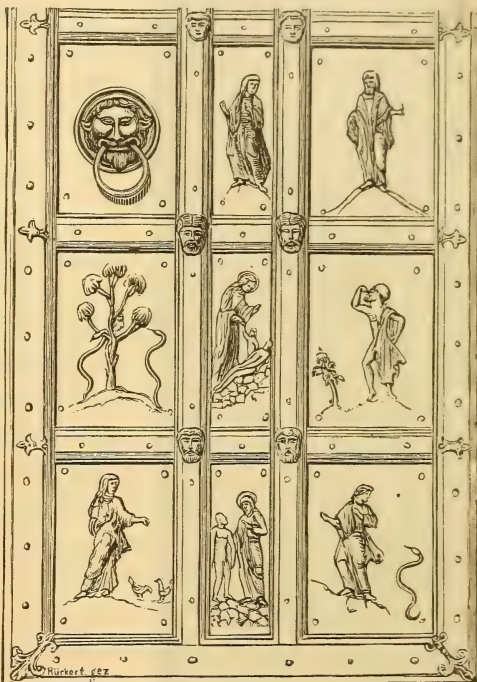 Rückert. gez